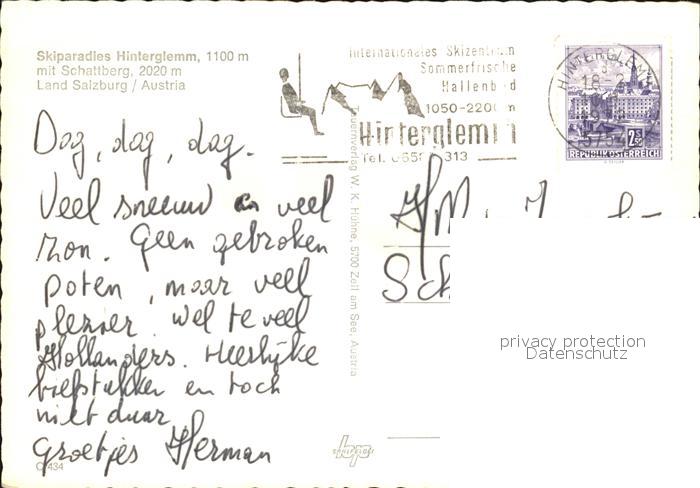 Skiparadies Hinterglemm, 1100 m
mit Schattberg, 2020 m
Land Salzburg / Austria
Internationales Skizentrum
Sommerfrische
Hallenbad
1050-2200 m
Hinterglemm
Tel. 0658 313
HINTERGLEMM
18-2
2.50
REPUBLIK ÖSTERREICH
Dag, dag, dag.
Veel sneeuw en veel
zon. Geen gebroken
poten, maar veel
plezier. Wel te veel
Hollanders. Heerlijke
biefstukken en toch
niet duur.
Groetjes Herman
Tauernverlag W. K. Hühne, 5700 Zell am See, Austria
Sch
privacy protection
Datenschutz
C 434